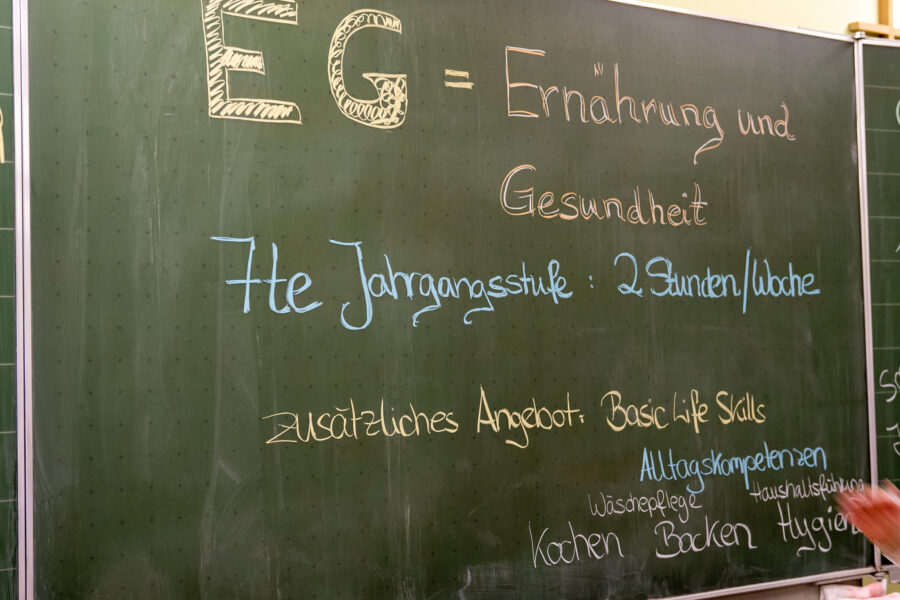 EG = Ernährung und
Gesundheit
7te Jahrgangsstufe : 2 Stunden/Woche
zusätzliches Angebot: Basic Life Skills
Alltagskompetenzen
Wäschepflege Haushaltsführung
Kochen Backen